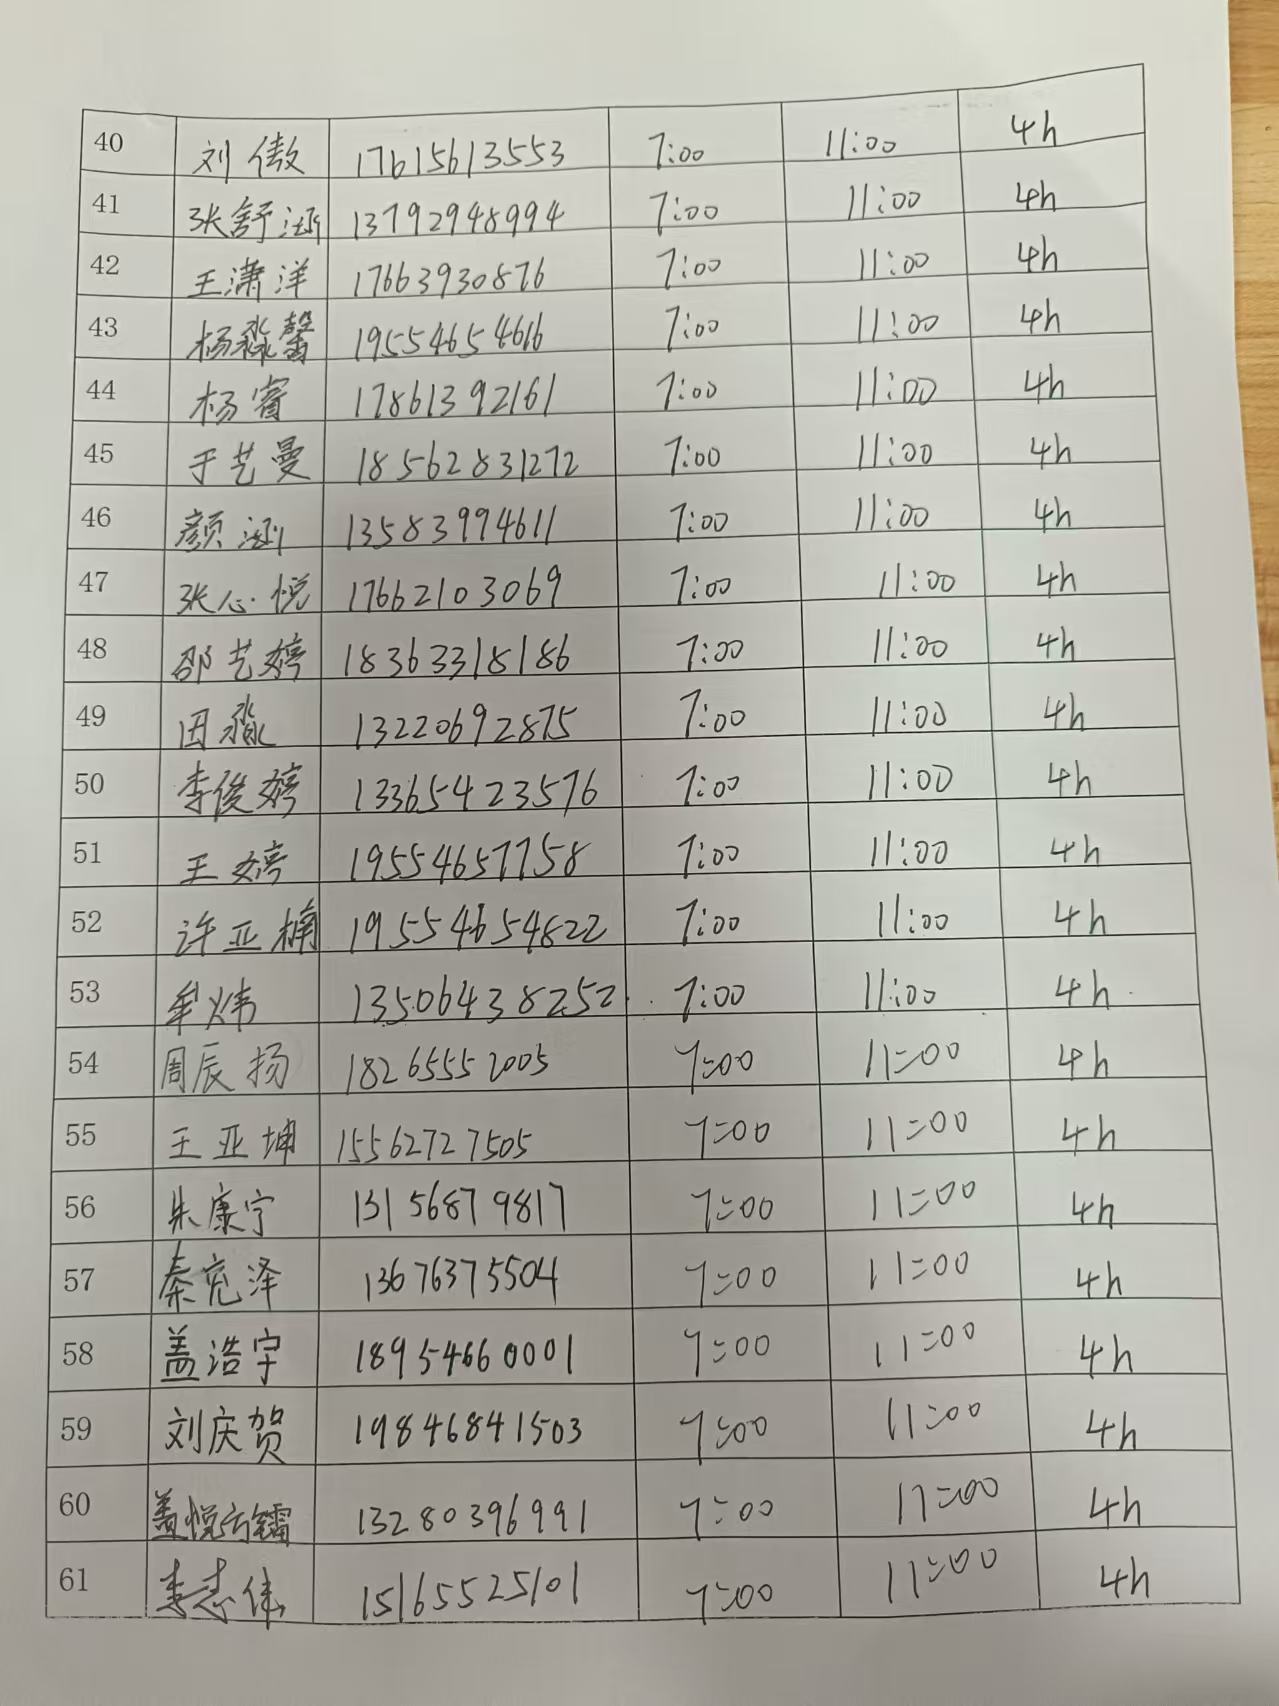 40 刘傲 17615613553 7:00 11:00 4h
41 张舒涵 13792948994 7:00 11:00 4h
42 王潇洋 17663930876 7:00 11:00 4h
43 杨淼馨 19554654616 7:00 11:00 4h
44 杨睿 17861392161 7:00 11:00 4h
45 于艺曼 18562831272 7:00 11:00 4h
46 颜涵 13583994611 7:00 11:00 4h
47 张心悦 17662103069 7:00 11:00 4h
48 邵艺婷 18363318186 7:00 11:00 4h
49 田淼 13220692875 7:00 11:00 4h
50 李俊婷 13365423576 7:00 11:00 4h
51 王婷 19554657758 7:00 11:00 4h
52 许亚楠 19554654822 7:00 11:00 4h
53 牟炜 13506438252 7:00 11:00 4h
54 周辰扬 18265552005 7:00 11:00 4h
55 王亚坤 15562727505 7:00 11:00 4h
56 朱康宁 13156879817 7:00 11:00 4h
57 秦宪泽 13676375504 7:00 11:00 4h
58 盖浩宇 18954660001 7:00 11:00 4h
59 刘庆贺 19846841503 7:00 11:00 4h
60 盖悦 13280396991 7:00 11:00 4h
61 李志伟 15165525101 7:00 11:00 4h